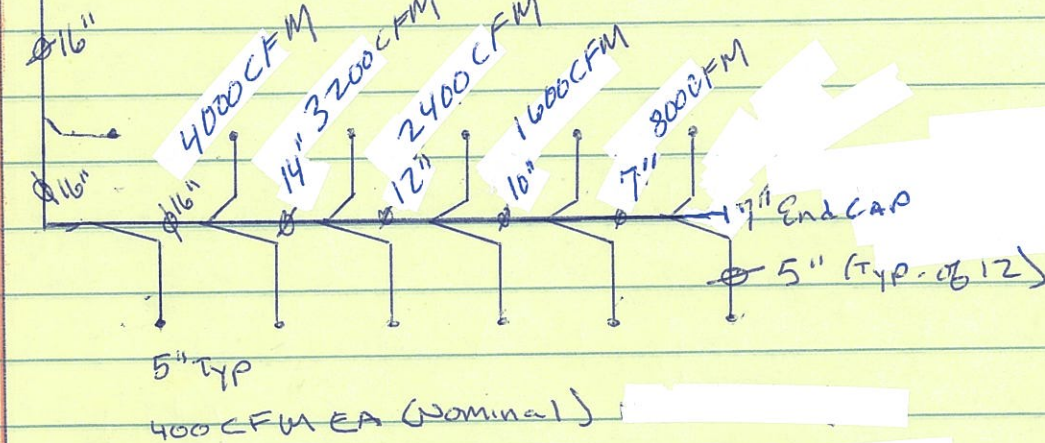 16"
4000CFM
3200CFM
2400CFM
1600CFM
800CFM
16"
16"
14"
12"
10"
7"
7" End CAP
5" (Typ. of 12)
5" Typ
400 CFM EA (Nominal)